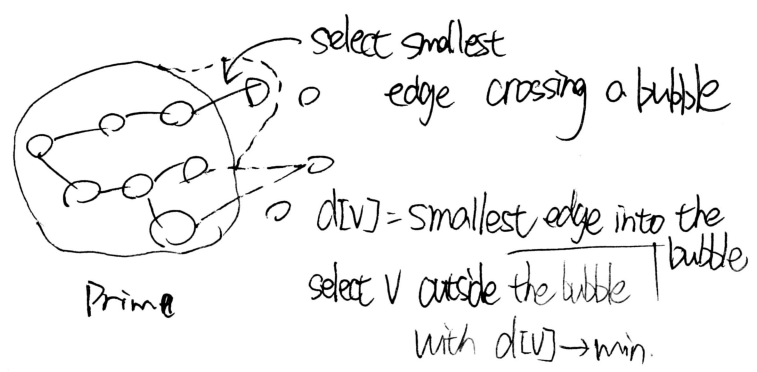 select smallest
edge crossing a bubble
d[v] = smallest edge into the
bubble
select v outside the bubble
with d[v] → min.
Prime